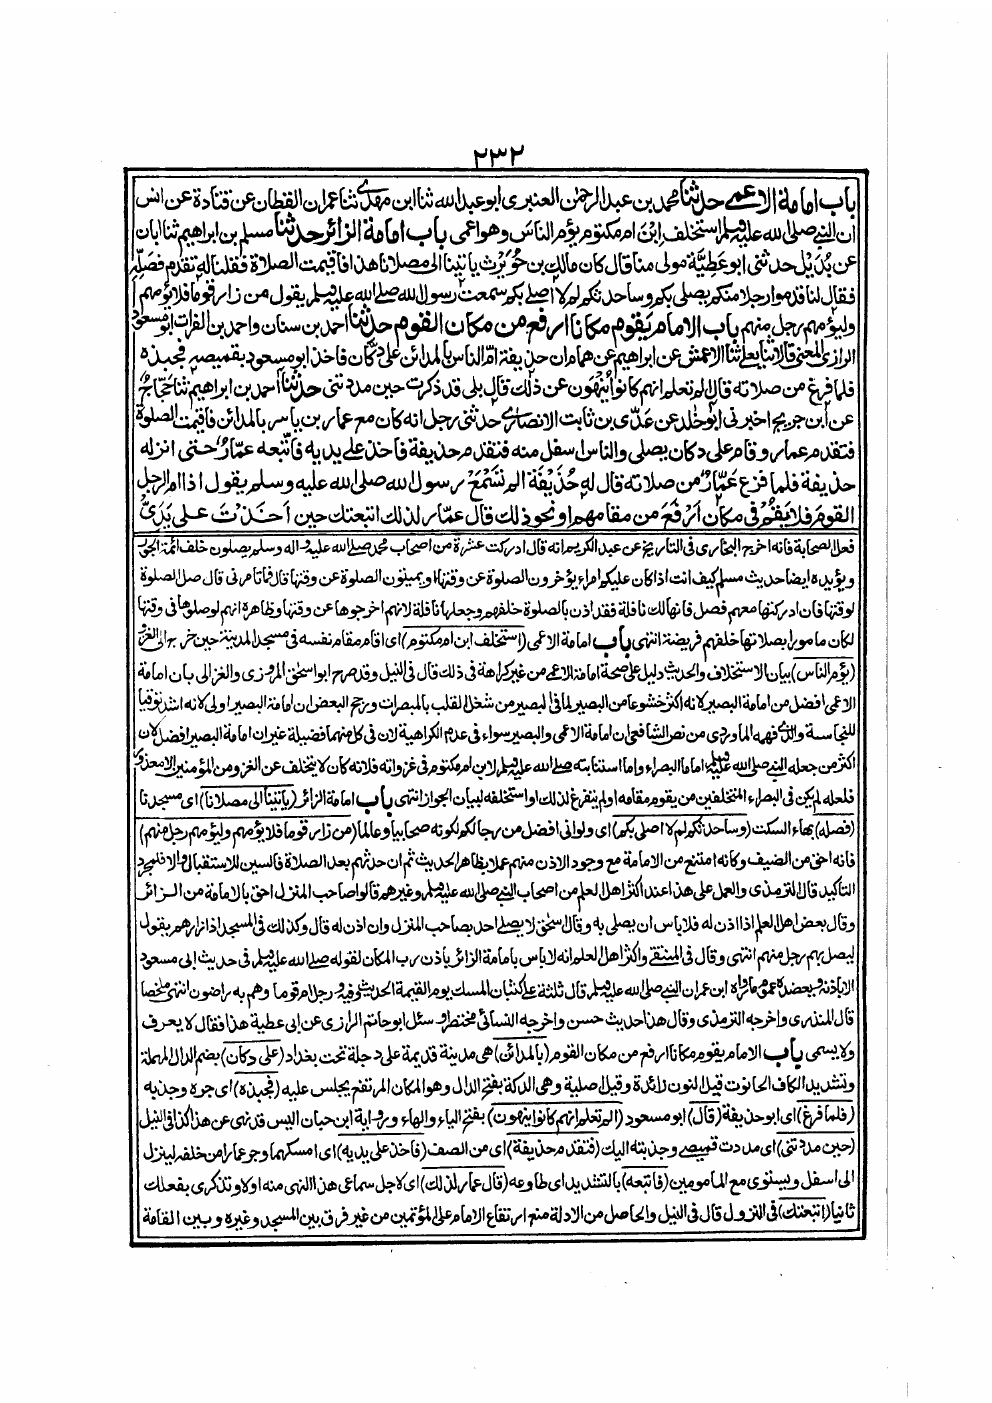 ٢٣٢
باب امامة الاعمى حدثنا محمد بن عبد الرحمٰن العنبرى ابو عبد الله ثنا ابن مهدي ثنا عمران القطان عن قتادة عن انس
ان النبي صلى الله عليه وسلم استخلف ابن ام مكتوم يؤم الناس وهو اعمى باب امامة الزائر حدثنا مسلم بن ابراهيم ثنا ابان
عن بديل حدثنى ابو عطية مولى منا قال كان مالك بن حويرث ياتينا الى مصلانا هذا فاقيمت الصلاة فقلنا له تقدم فصله
فقال لنا قدموا رجلا منكم يصلى بكم وساحدثكم لم لا اصلى بكم سمعت رسول الله صلى الله عليه وسلم يقول من زار قوما فلا يؤمهم
وليؤمهم رجل منهم باب الامام يقوم مكانا ارفع من مكان القوم حدثنا احمد بن سنان واحمد بن الفرات ابو مسعود
الرازى المعنى قالا ثنا يعلى ثنا الاعمش عن ابراهيم عن همام ان حذيفة امّ الناس بالمدائن على دكّان فاخذ ابو مسعود بقميصه فجبذه
فلما فرغ من صلاته قال الم تعلم انهم كانوا ينهون عن ذلك قال بلى قد ذكرت حين مددتنى حدثنا احمد بن ابراهيم ثنا حجاج
عن ابن جريج اخبرنى ابو خالد عن عدى بن ثابت الانصارى حدثنى رجل انه كان مع عمار بن ياسر بالمدائن فاقيمت الصلوة
فتقدم عمار وقام على دكان يصلى والناس اسفل منه فتقدم حذيفة فاخذ على يديه فاتّبعه عمّار حتى انزله
حذيفة فلما فرغ عمّار من صلاته قال له حُذَيْفَة الم تسمع رسول الله صلى الله عليه وسلم يقول اذا ام الرجل
القوم فلا يقم فى مكان ارفع من مقامهم او نحو ذلك قال عمّار لذلك اتبعتك حين اخذت على يدىّ
فعل الصحابة فانه اخرج البخارى فى التاريخ عن عبد الكريم انه قال ادركت عشرة من اصحاب محمد صلى الله عليه واله وسلم يصلون خلف ائمة الجور
ويؤيده ايضا حديث مسلم كيف انت اذا كان عليكم امراء يؤخرون الصلوة عن وقتها او يميتون الصلوة عن وقتها قال فما تامرنى قال صل الصلوة
لوقتها فان ادركتها معهم فصل فانها لك نافلة فقد اذن بالصلوة خلفهم وجعلها نافلة لانهم اخرجوها عن وقتها وظاهره انهم لو صلوها فى وقتها
لكان مامورا بصلاتها خلفهم فريضة انتهى باب امامة الاعمى (استخلف ابن ام مكتوم) اى اقام مقام نفسه فى مسجد المدينة حين خرج الى الغزو
(يؤم الناس) بيان الاستخلاف والحديث دليل على صحة امامة الاعمى من غير كراهة فى ذلك قال فى النيل وقد صرح ابو اسحٰق المروزى والغزالى بان امامة
الاعمى افضل من امامة البصير لانه اكثر خشوعا من البصير لما فى البصير من شغل القلب بالمبصرات ورجح البعض ان امامة البصير اولى لانه اشد توقيا
للنجاسة والذى فهمه الماوردى من نص الشافعى ان امامة الاعمى والبصير سواء فى عدم الكراهية لان فى كل منهما فضيلة غير ان امامة البصير افضل لان
اكثر من جعله النبي صلى الله عليه وسلم اماما البصراء واما استنابته صلى الله عليه وسلم لابن ام مكتوم فى غزواته فلانه كان لا يتخلف عن الغزو من المؤمنين الا معذور
فلعله لم يكن فى البصراء المتخلفين من يقوم مقامه او لم يتفرغ لذلك او استخلفه لبيان الجواز انتهى باب امامة الزائر (ياتينا الى مصلانا) اى مسجدنا
(فصله) بهاء السكت (وساحدثكم لم لا اصلى بكم) اى ولوانى افضل من رجالكم لكونه صحابيا وعالما (من زار قوما فلا يؤمهم وليؤمهم رجل منهم)
فانه احق من الضيف وكانه امتنع من الامامة مع وجود الاذن منهم عملا بظاهر الحديث ثم ان حدثهم بعد الصلاة فالسين للاستقبال والا فلمجرد
التاكيد قال الترمذى والعمل على هذا عند اكثر اهل العلم من اصحاب النبى صلى الله عليه وسلم وغيرهم قالوا صاحب المنزل احق بالامامة من الزائر
وقال بعض اهل العلم اذا اذن له فلا باس ان يصلى به وقال اسحٰق لا يصلى احد بصاحب المنزل وان اذن له قال وكذلك فى المسجد اذا زارهم يقول
ليصل بهم رجل منهم انتهى وقال فى المنتقى واكثر اهل العلم انه لا باس بامامة الزائر باذن رب المكان لقوله صلى الله عليه وسلم فى حديث ابى مسعود
الا باذنه ويعضده عموم ما رواه ابن عمر ان النبى صلى الله عليه وسلم قال ثلثة على كثبان المسك يوم القيمة الحديث وفيه ورجل ام قوما وهم به راضون انتهى ملخصا
قال المنذرى واخرجه الترمذى وقال هذا حديث حسن واخرجه النسائى مختصرا وسئل ابو حاتم الرازى عن ابى عطية هذا فقال لا يعرف
ولا يسمى باب الامام يقوم مكانا ارفع من مكان القوم (بالمدائن) هى مدينة قديمة على دجلة تحت بغداد (على دكان) بضم الدال المهملة
وتشديد الكاف الحانوت قيل النون زائدة وقيل اصلية وهى الدكة بفتح الدال وهو المكان المرتفع يجلس عليه (فجبذه) اى جره وجذبه
(فلما فرغ) اى ابو حذيفة (قال) ابو مسعود (الم تعلم انهم كانوا ينهون) بفتح الياء والهاء ورواية ابن حبان اليس قد نهى عن هذا كذا فى النيل
(حين مددتنى) اى مددت قميصى وجذبته اليك (فتقدم حذيفة) اى من الصف (فاخذ على يديه) اى امسكهما وجر عمارا من خلفه لينزل
الى اسفل ويستوى مع المامومين (فاتبعه) بالتشديد اى طاوعه (قال عمار لذلك) اى لاجل سماعى هذا النهى منه اولا وتذكرى بفعلك
ثانيا (اتبعتك) فى النزول قال فى النيل والحاصل من الادلة منع ارتفاع الامام على المؤتمين من غير فرق بين المسجد وغيره وبين القامة